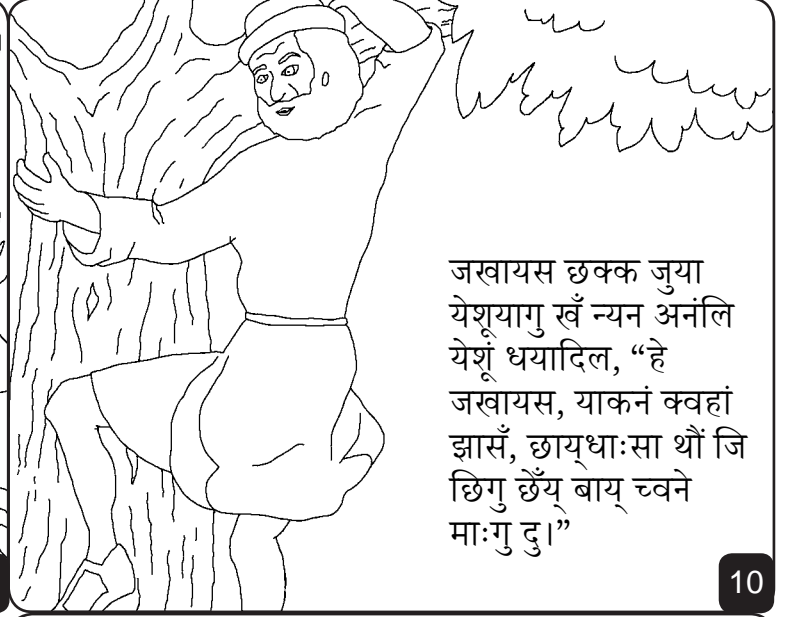 जखायस छक्क जुया
येशूयागु खँ न्यन अनंलि
येशूं धयादिल, “हे
जखायस, याकनं क्वहां
झासँ, छाय्‌धाःसा थौं जि
छिगु छेँय् बाय् च्वने
माःगु दु।”
10